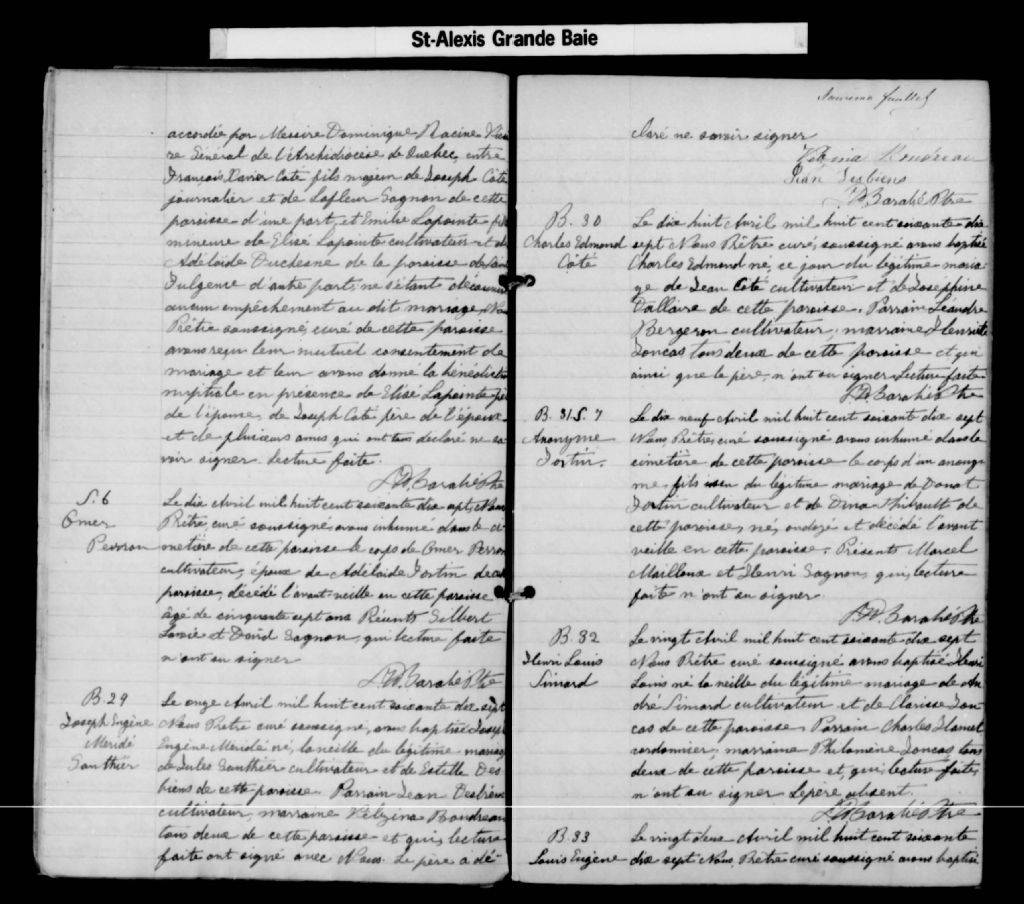 St-Alexis Grande Baie
accordée par Messire Dominique Racine Vicai
re Général de l'Archidiocèse de Québec, entre
François Xavier Coté fils majeur de Joseph Coté
journalier et de Lafleur Gagnon de cette
paroisse d'une part, et Emilie Lapointe fille
mineure de Elisé Lapointe cultivateur et de
Adélaïde Duchesne de la paroisse de Saint
Fulgence d'autre part; ne s'étant découvert
aucun empêchement au dit mariage, Nous
Prêtre soussigné, curé de cette paroisse
avons reçu leur mutuel consentement de
mariage et leur avons donné la bénédiction
nuptiale en présence de Elisé Lapointe père
de l'épouse, de Joseph Coté père de l'époux
et de plusieurs amis qui ont tous déclaré ne sa
voir signer. Lecture faite.
Barabé Ptre
S. 6
Omer
Perron
Le dix Avril mil huit cent soixante dix sept, Nous
Prêtre, curé soussigné, avons inhumé dans le ci
metière de cette paroisse le corps de Omer Perron
cultivateur, époux de Adélaïde Fortin de cette
paroisse, décédé l'avant-veille en cette paroisse
âgé de cinquante sept ans Présents Gilbert
Lavoie et David Gagnon, qui lecture faite
n'ont su signer
Barabé Ptre
B 29
Joseph Eugène
Méridé
Gauthier
Le onze Avril mil huit cent soixante dix sept
Nous Prêtre curé soussigné, avons baptisé Joseph
Eugène Méridé né, la veille du légitime mariage
de Jules Gauthier cultivateur et de Estelle Des
biens de cette paroisse. Parrain Jean Desbiens
cultivateur, marraine Boudreau
tous deux de cette paroisse et qui, lecture
faite ont signé avec Nous. Le père a dé-
feuillet
claré ne savoir signer
Boudreau
Jean Desbiens
Barabé Ptre
B. 30
Charles Edmond
Côté
Le dix huit Avril mil huit cent soixante dix
sept Nous Prêtre curé, soussigné avons baptisé
Charles Edmond né, ce jour du légitime maria-
ge de Jean Coté cultivateur et de Josephine
Dallaire de cette paroisse. Parrain Léandre
Bergeron cultivateur, marraine Henriette
Joncas tous deux de cette paroisse et qui
ainsi que le père, n'ont su signer. Lecture faite.
Barabé Ptre
B. 31 S. 7
Anonyme
Fortin.
Le dix neuf Avril mil huit cent soixante dix sept
Nous, Prêtre, curé soussigné avons inhumé dans le
cimetière de cette paroisse le corps d'un anony-
me fils issu du légitime mariage de Donat
Fortin cultivateur et de Dina Thibault de
cette paroisse, né, ondoyé et décédé l'avant
veille en cette paroisse. Présents Marcel
Mailloux et Henri Gagnon, qui, lecture
faite n'ont su signer.
Barabé Ptre
B. 32
Henri Louis
Simard
Le vingt Avril mil huit cent soixante dix sept
Nous Prêtre curé soussigné avons baptisé Henri
Louis né la veille du légitime mariage de An
dré Simard cultivateur et de Clarisse Jon-
cas de cette paroisse Parrain Charles Hamel
cordonnier; marraine Philomène Joncas tous
deux de cette paroisse et qui, lecture faite,
n'ont su signer Le père absent.
Barabé Ptre
B. 33
Louis Eugène
Le vingt deux Avril mil huit cent soixante
dix sept Nous Prêtre curé soussigné avons baptisé